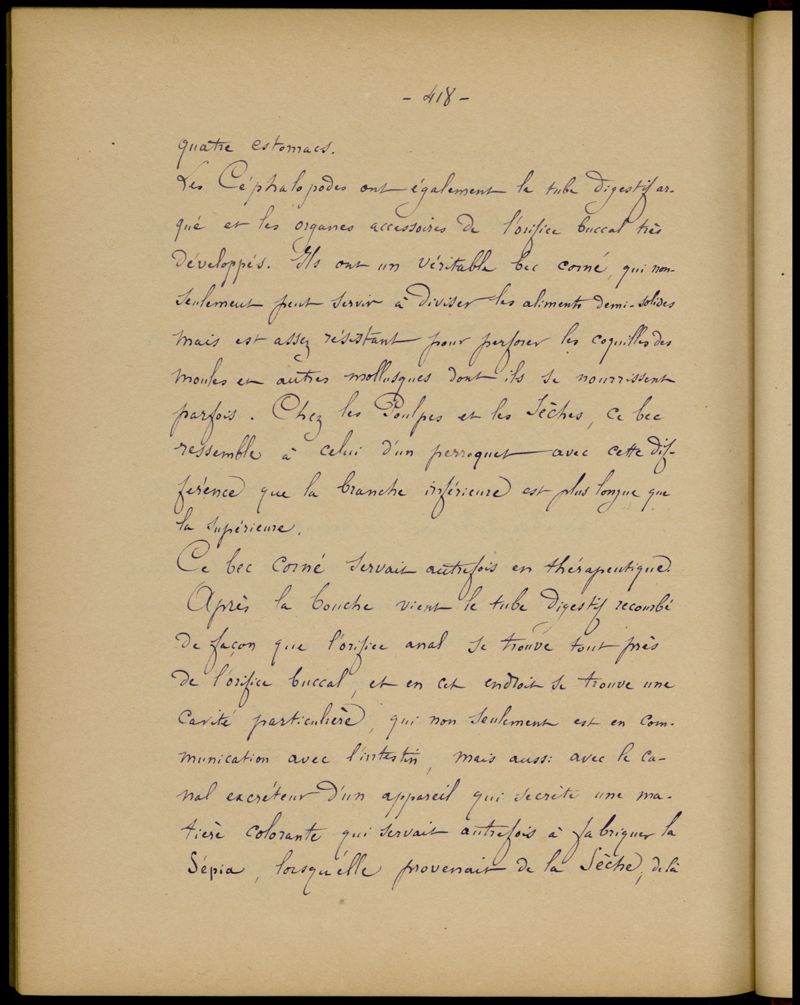 - 418 -
quatre estomacs.
Les Céphalopodes ont également le tube digestif ar-
qué et les organes accessoires de l'orifice buccal très
développés. Ils ont un véritable bec corné, qui non-
seulement peut servir à diviser les aliments demi-solides
mais est assez résistant pour perforer les coquilles des
moules et autres mollusques dont ils se nourrissent
parfois. Chez les Poulpes et les Sèches, ce bec
ressemble à celui d'un perroquet avec cette dif-
férence que la branche inférieure est plus longue que
la supérieure.
Ce bec corné servait autrefois en thérapeutique.
Après la bouche vient le tube digestif recourbé
de façon que l'orifice anal se trouve tout près
de l'orifice buccal, et en cet endroit se trouve une
cavité particulière, qui non seulement est en com-
munication avec l'intestin, mais aussi avec le ca-
nal excréteur d'un appareil qui secrète une ma-
tière colorante qui servait autrefois à fabriquer la
Sépia, lorsqu'elle provenait de la Sèche, de là